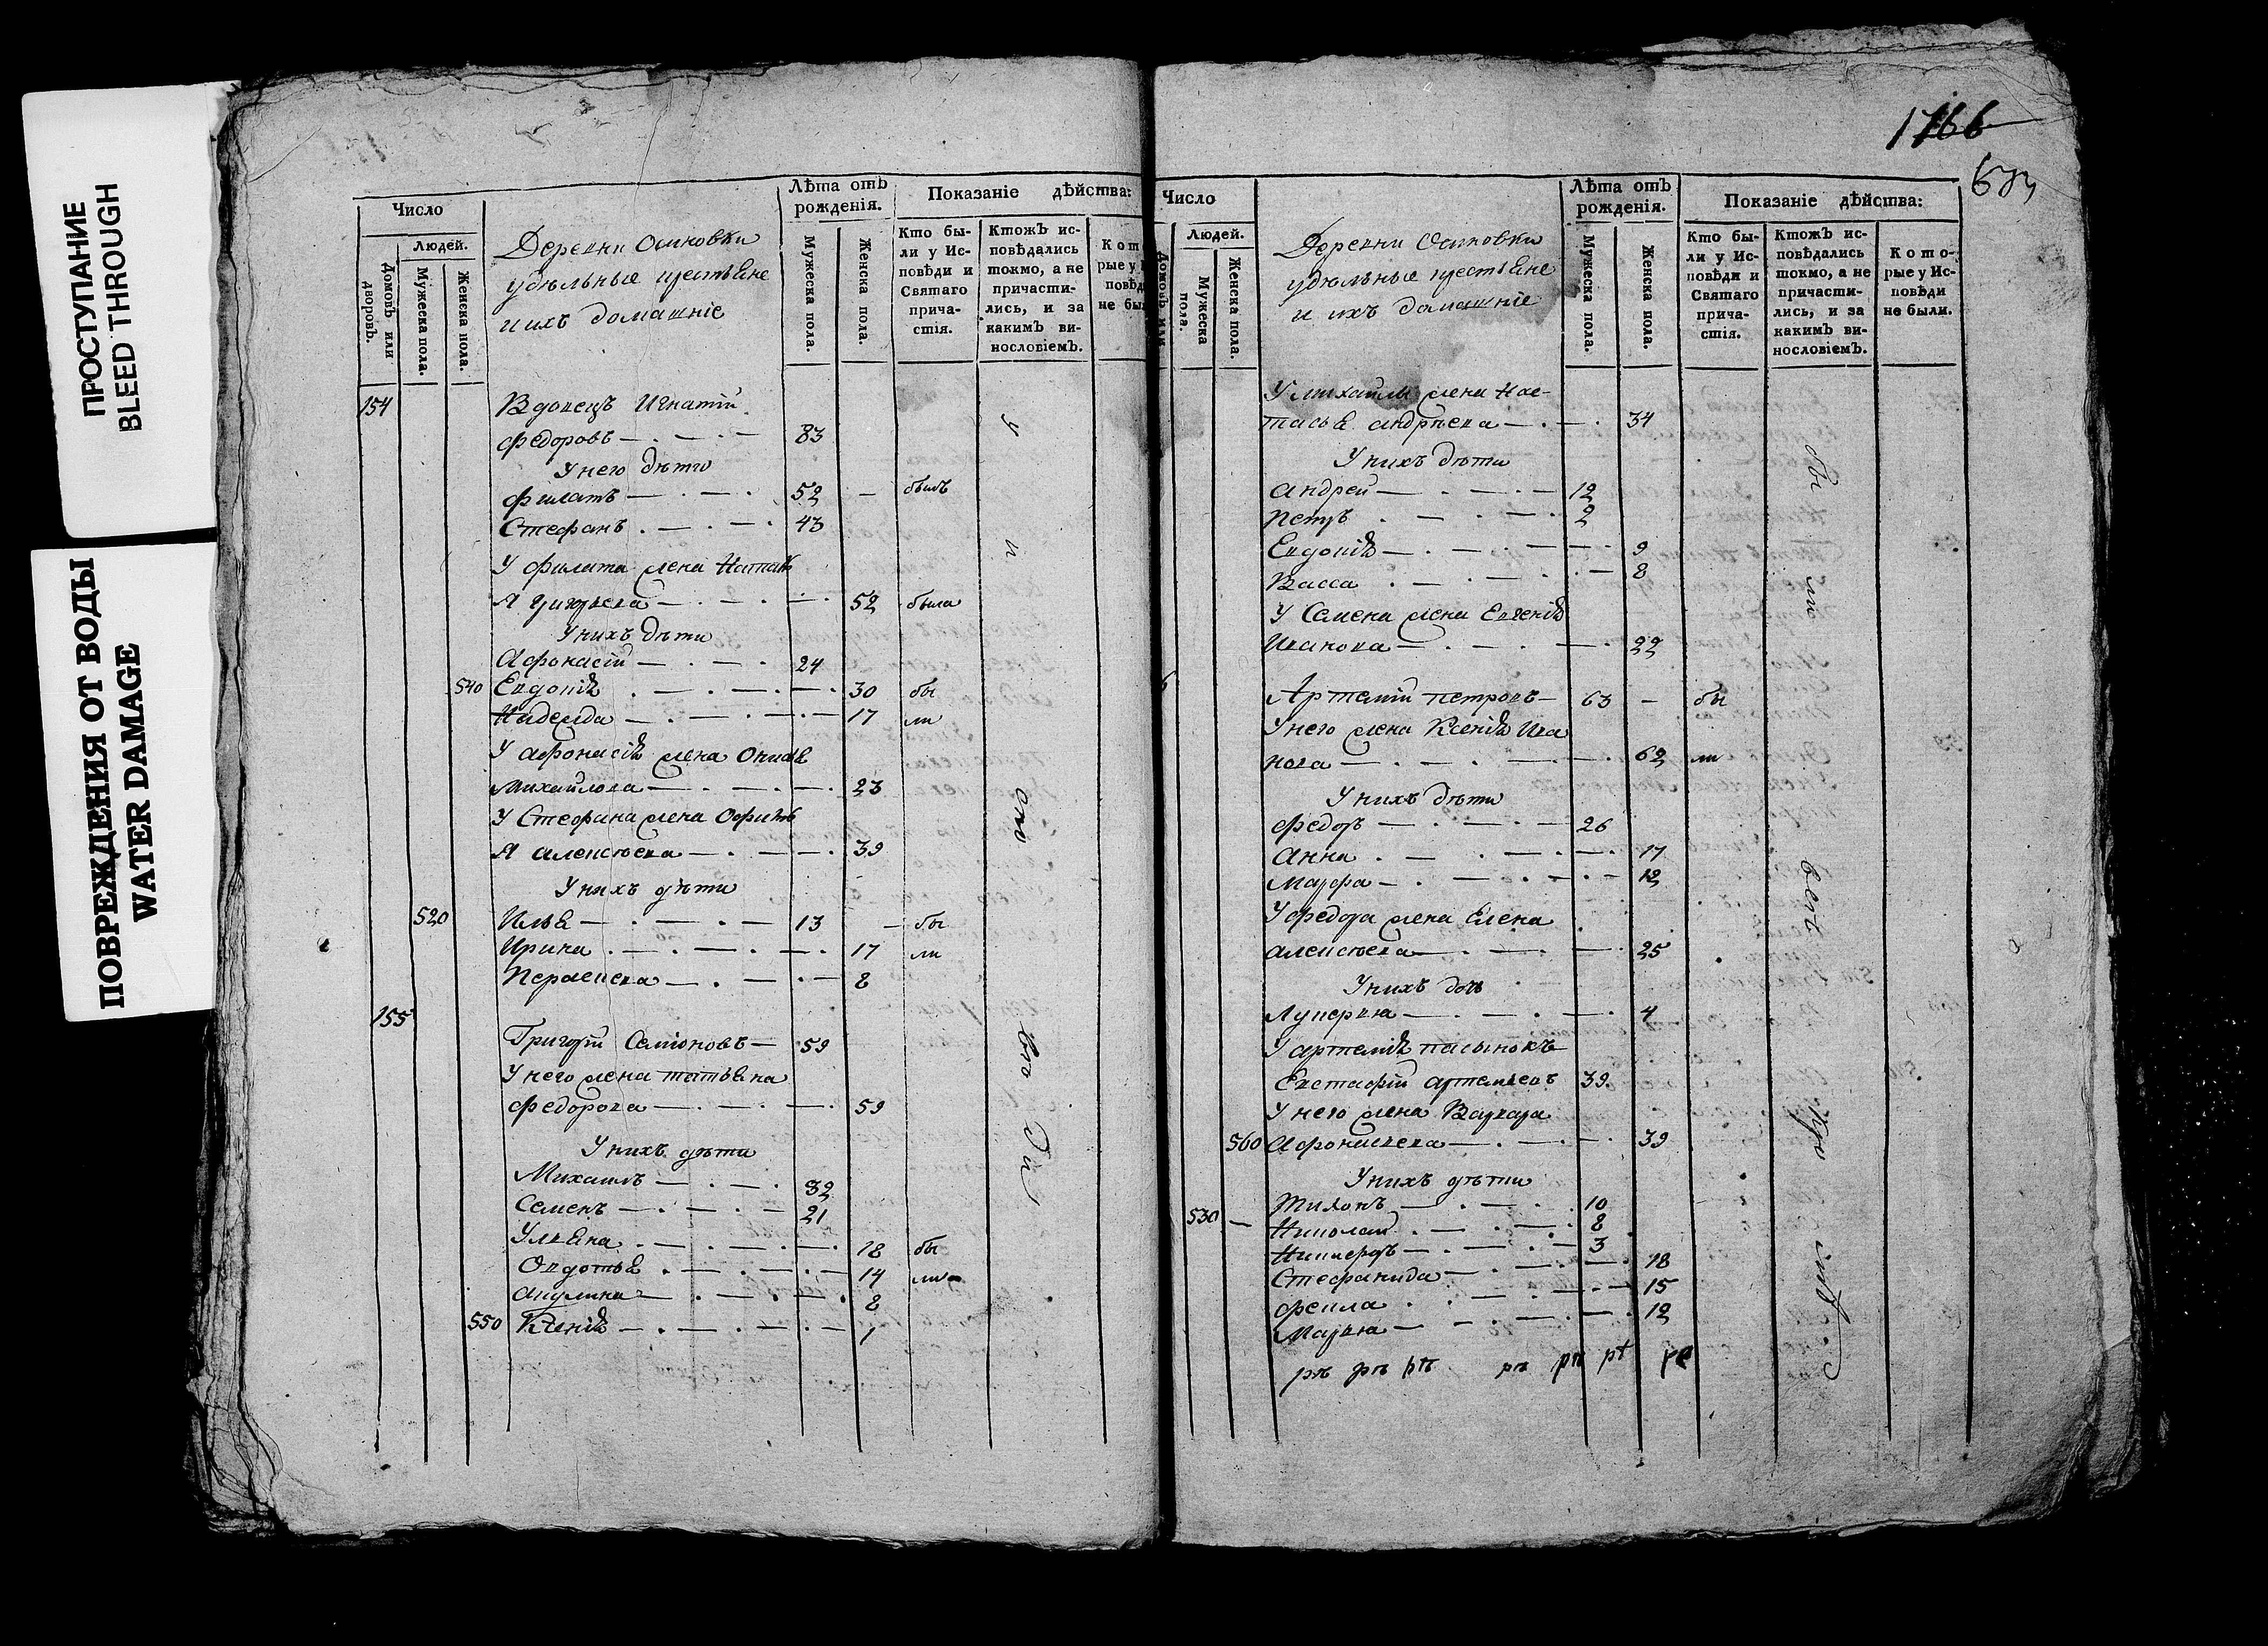 ПРОСТУПАНИЕ
BLEED THROUGH
ПОВРЕЖДЕНИЯ ОТ ВОДЫ
WATER DAMAGE
Число
Людей.
Домовъ или дворовъ.
Мужеска пола.
Женска пола.
Деревни Осиновки
удѣльные крестьяне
и ихъ домашніе
Лѣта отъ рожденія.
Мужеска пола.
Женска пола.
Показаніе дѣйства:
Кто были у Исповѣди и Святаго причастія.
Ктожъ исповѣдались токмо, а не причастились, и за какимъ винословіемъ.
154 Вдовецъ Игнатій
Федоровъ 83
У него дѣти
Филатъ 52 былъ
Стефанъ 43
У Филата жена Наталь
я Григорьева 52 была
У нихъ дѣти
Афонасій 24
540 Евдокія 30 бы
Надежда 17 ли
У Афонасія жена
Михайлова 23
У Стефана жена Офимь
я Алексѣева 39
У нихъ дѣти
520 Илья 13 бы
Ирина 17 ли
8
155
Григорій Семіоновъ 59
У него жена Татьяна
Федорова 59
У нихъ дѣти
Михаилъ 32
Семенъ 21
Ульяна 18 бы
Овдотья 14 ли
Акулина 8
550 Ксенія 1
1766
Число
Людей.
Домовъ или
Мужеска пола.
Женска пола.
Деревни Осиновки
удѣльные крестьяне
и ихъ домашніе
Лѣта отъ рожденія.
Мужеска пола.
Женска пола.
Показаніе дѣйства:
Кто были у Исповѣди и Святаго причастія.
Ктожъ исповѣдались токмо, а не причастились, и за какимъ винословіемъ.
Которые у Исповѣди не были.
У Михайлы жена Нас-
тасья Андрѣева 34
У нихъ дѣти
Андрей 12
Петръ 2
Евдокія 9
Васса 8
У Семена жена Евгенія
Иванова 22
Артемій Петровъ 63 бы
У него жена Ксенія Ива
нова 62 ли
У нихъ дѣти
Федоръ 26
Анна 17
Марфа 12
У Федора жена Елена
Алексѣева 25
У нихъ дочь
Лукерья 4
У Артемія пасынокъ
Евстафій Артемьевъ 39
У него жена Варвара
560 Афонасьева 39
У нихъ дѣти
Тихонъ 10
530 Николай 8
Никифоръ 3
Стефанида 18
Фекла 15
Марья 12